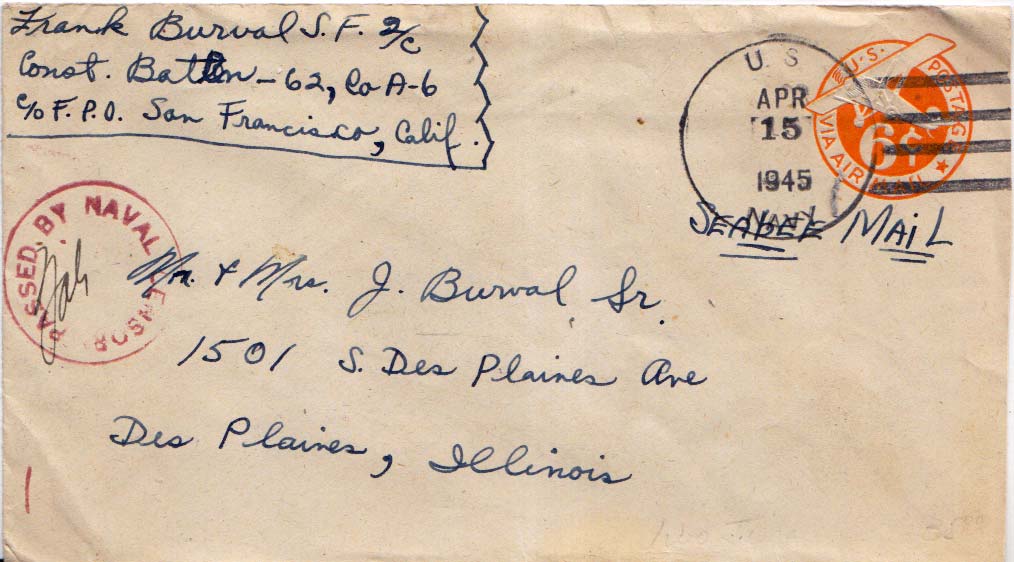 Frank Burval S.F. 2/c
Const. Batln - 62, Co A-6
c/o F.P.O. San Francisco, Calif.
U.S.
APR
15
1945
NAVY
U.S. POSTAGE
6¢
VIA AIR MAIL
SEABEE MAIL
PASSED BY NAVAL CENSOR
Mr. & Mrs. J. Burval Sr.
1501 S. Des Plaines Ave
Des Plaines, Illinois